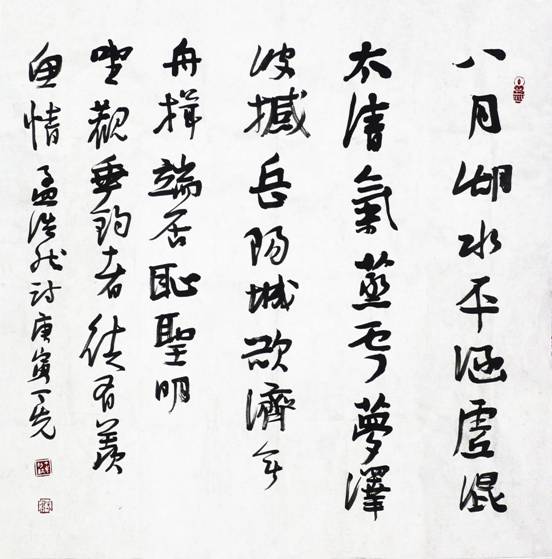 八月湖水平涵虛混
太清氣蒸雲夢澤
波撼岳陽城欲濟無
舟楫端居恥聖明
坐觀垂釣者徒有羨
魚情孟浩然詩庚寅